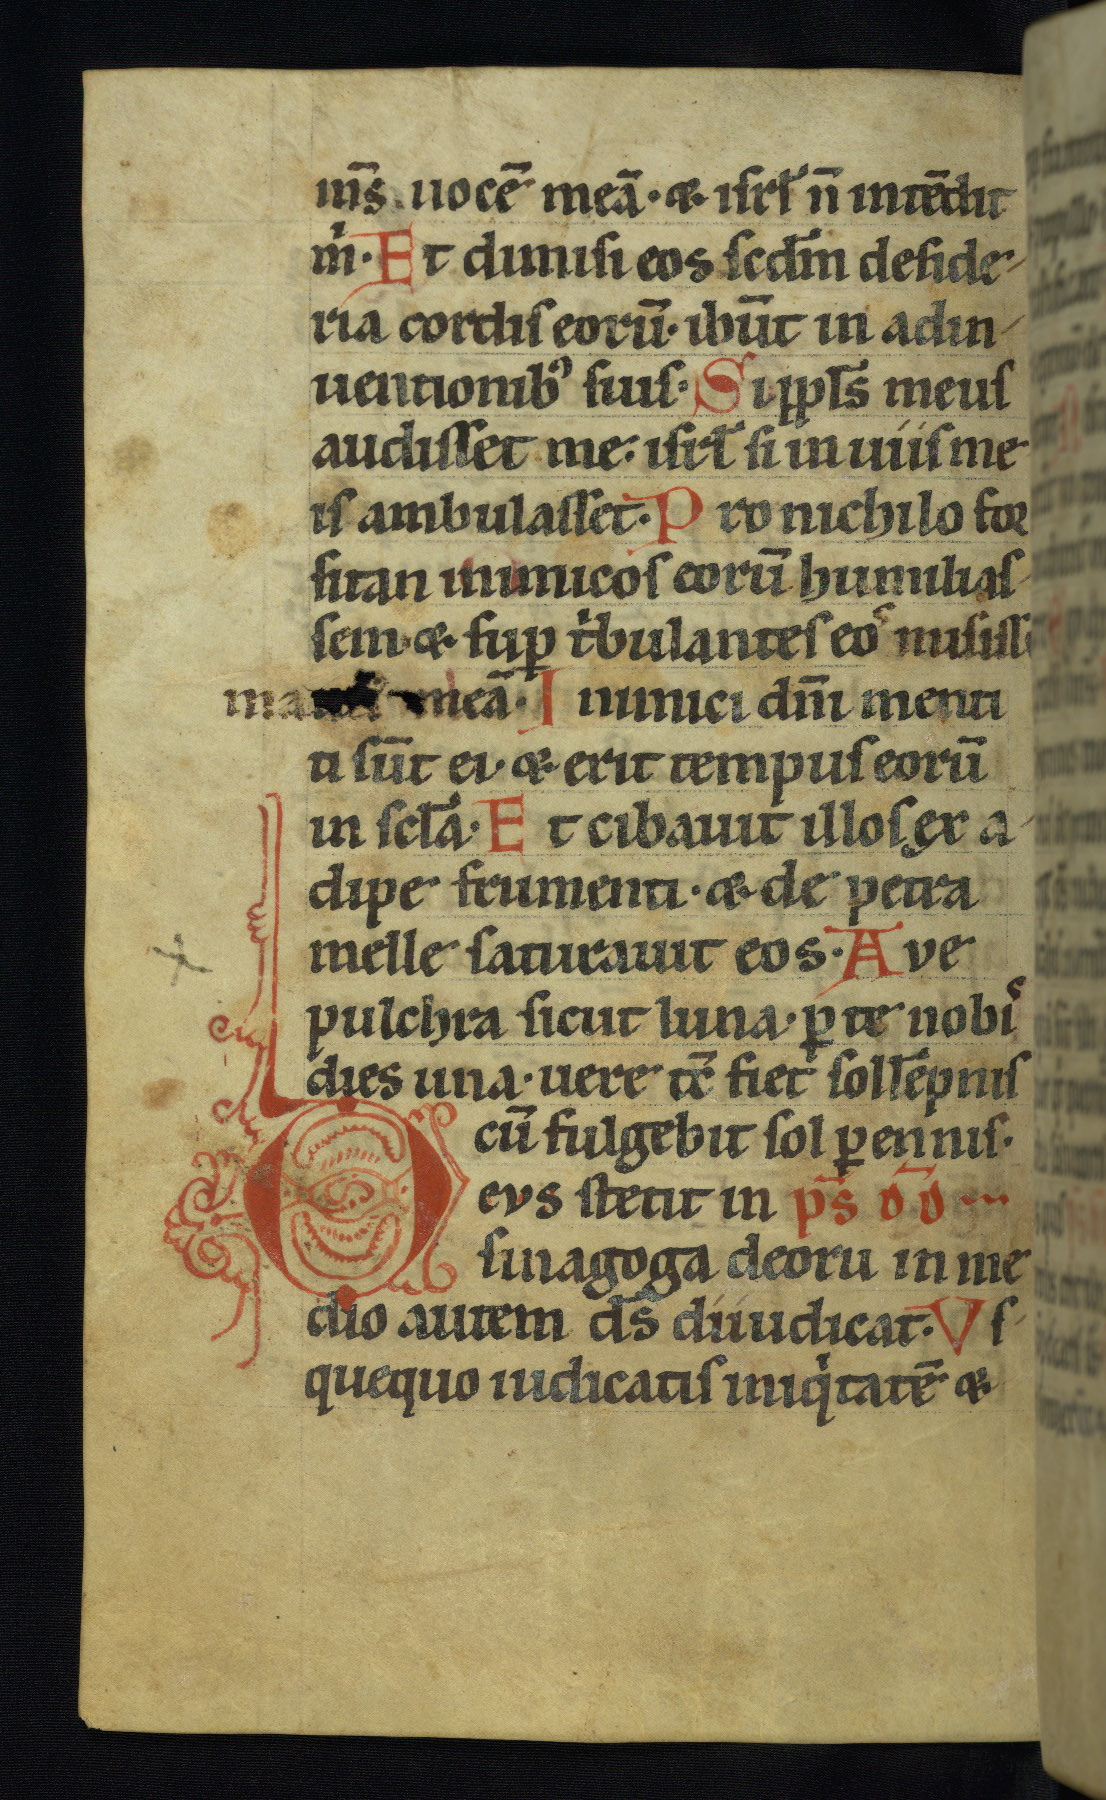 m̄s uocē meā· & isrl̄ n̄ intēdit
m̍· Et dimisi eos scdm̄ deside
ria cordis eorū· ibūt in adin
uentionibꝰ suis· Si ppl̄s meus
audisset me· isrl̄ si in uiis me
is ambulasset· Pro nichilo for
sitan inimicos eorū humilias
sem· & suꝑ t̍bulantes eos misisse
meā· Inimici dn̄i menti
ti sūt ei· & erit tempus eorū
in scl̄a· Et cibauit illos ex a
dipe frumenti· & de petra
melle saturauit eos· Ave
pulchra sicut luna· ꝑ te nobis
dies una· uere tē fiet sollēpnis
cū fulgebit sol ꝑennis·
Devs stetit in ps̄
sinagoga deoru in me
dio autem ds̄ diiudicat· Vs
quequo iudicatis iniq̍tatē &